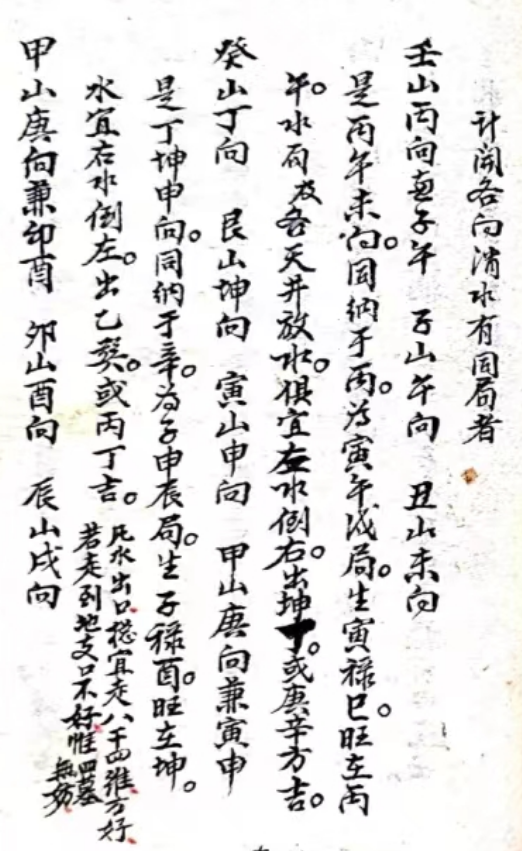 计開各向消水有同局者
壬山丙向兼子午　子山午向　丑山未向
是丙午未向。同納于丙。为寅午戌局。生寅祿巳。旺在丙
午。水両及各天井放水。俱宜左水倒右。出坤丁。或庚辛方吉。
癸山丁向　艮山坤向　寅山申向　甲山庚向兼寅申
是丁坤申向。同納于辛。为子申辰局。生子祿酉。旺在坤。
水宜右水倒左。出乙癸。或丙丁吉。
凡水出口、摠宜走八干四維方好、
若走到地支只不好、惟四墓
無妨、
甲山庚向兼卯酉　卯山酉向　辰山戌向